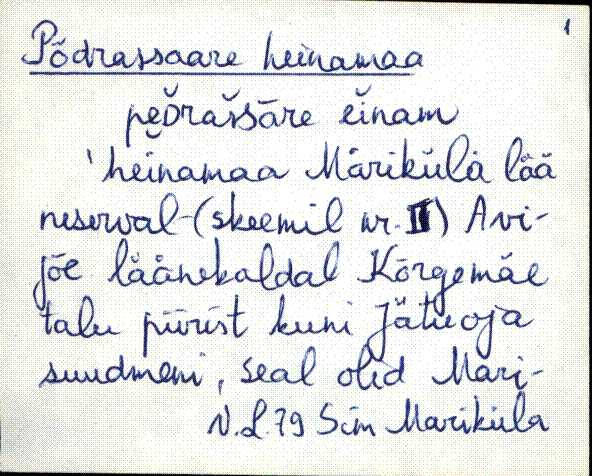 1
Põdrassaare heinamaa
pеδrašsāre еinam
'heinamaa Märiküla lää
neserval (skeemil nr. II) Avi-
jõe läänekaldal Kõrgemäe
talu piirist kuni Jätuoja
suudmeni, seal olid Mari-
N.L. 79 Sim Mariküla